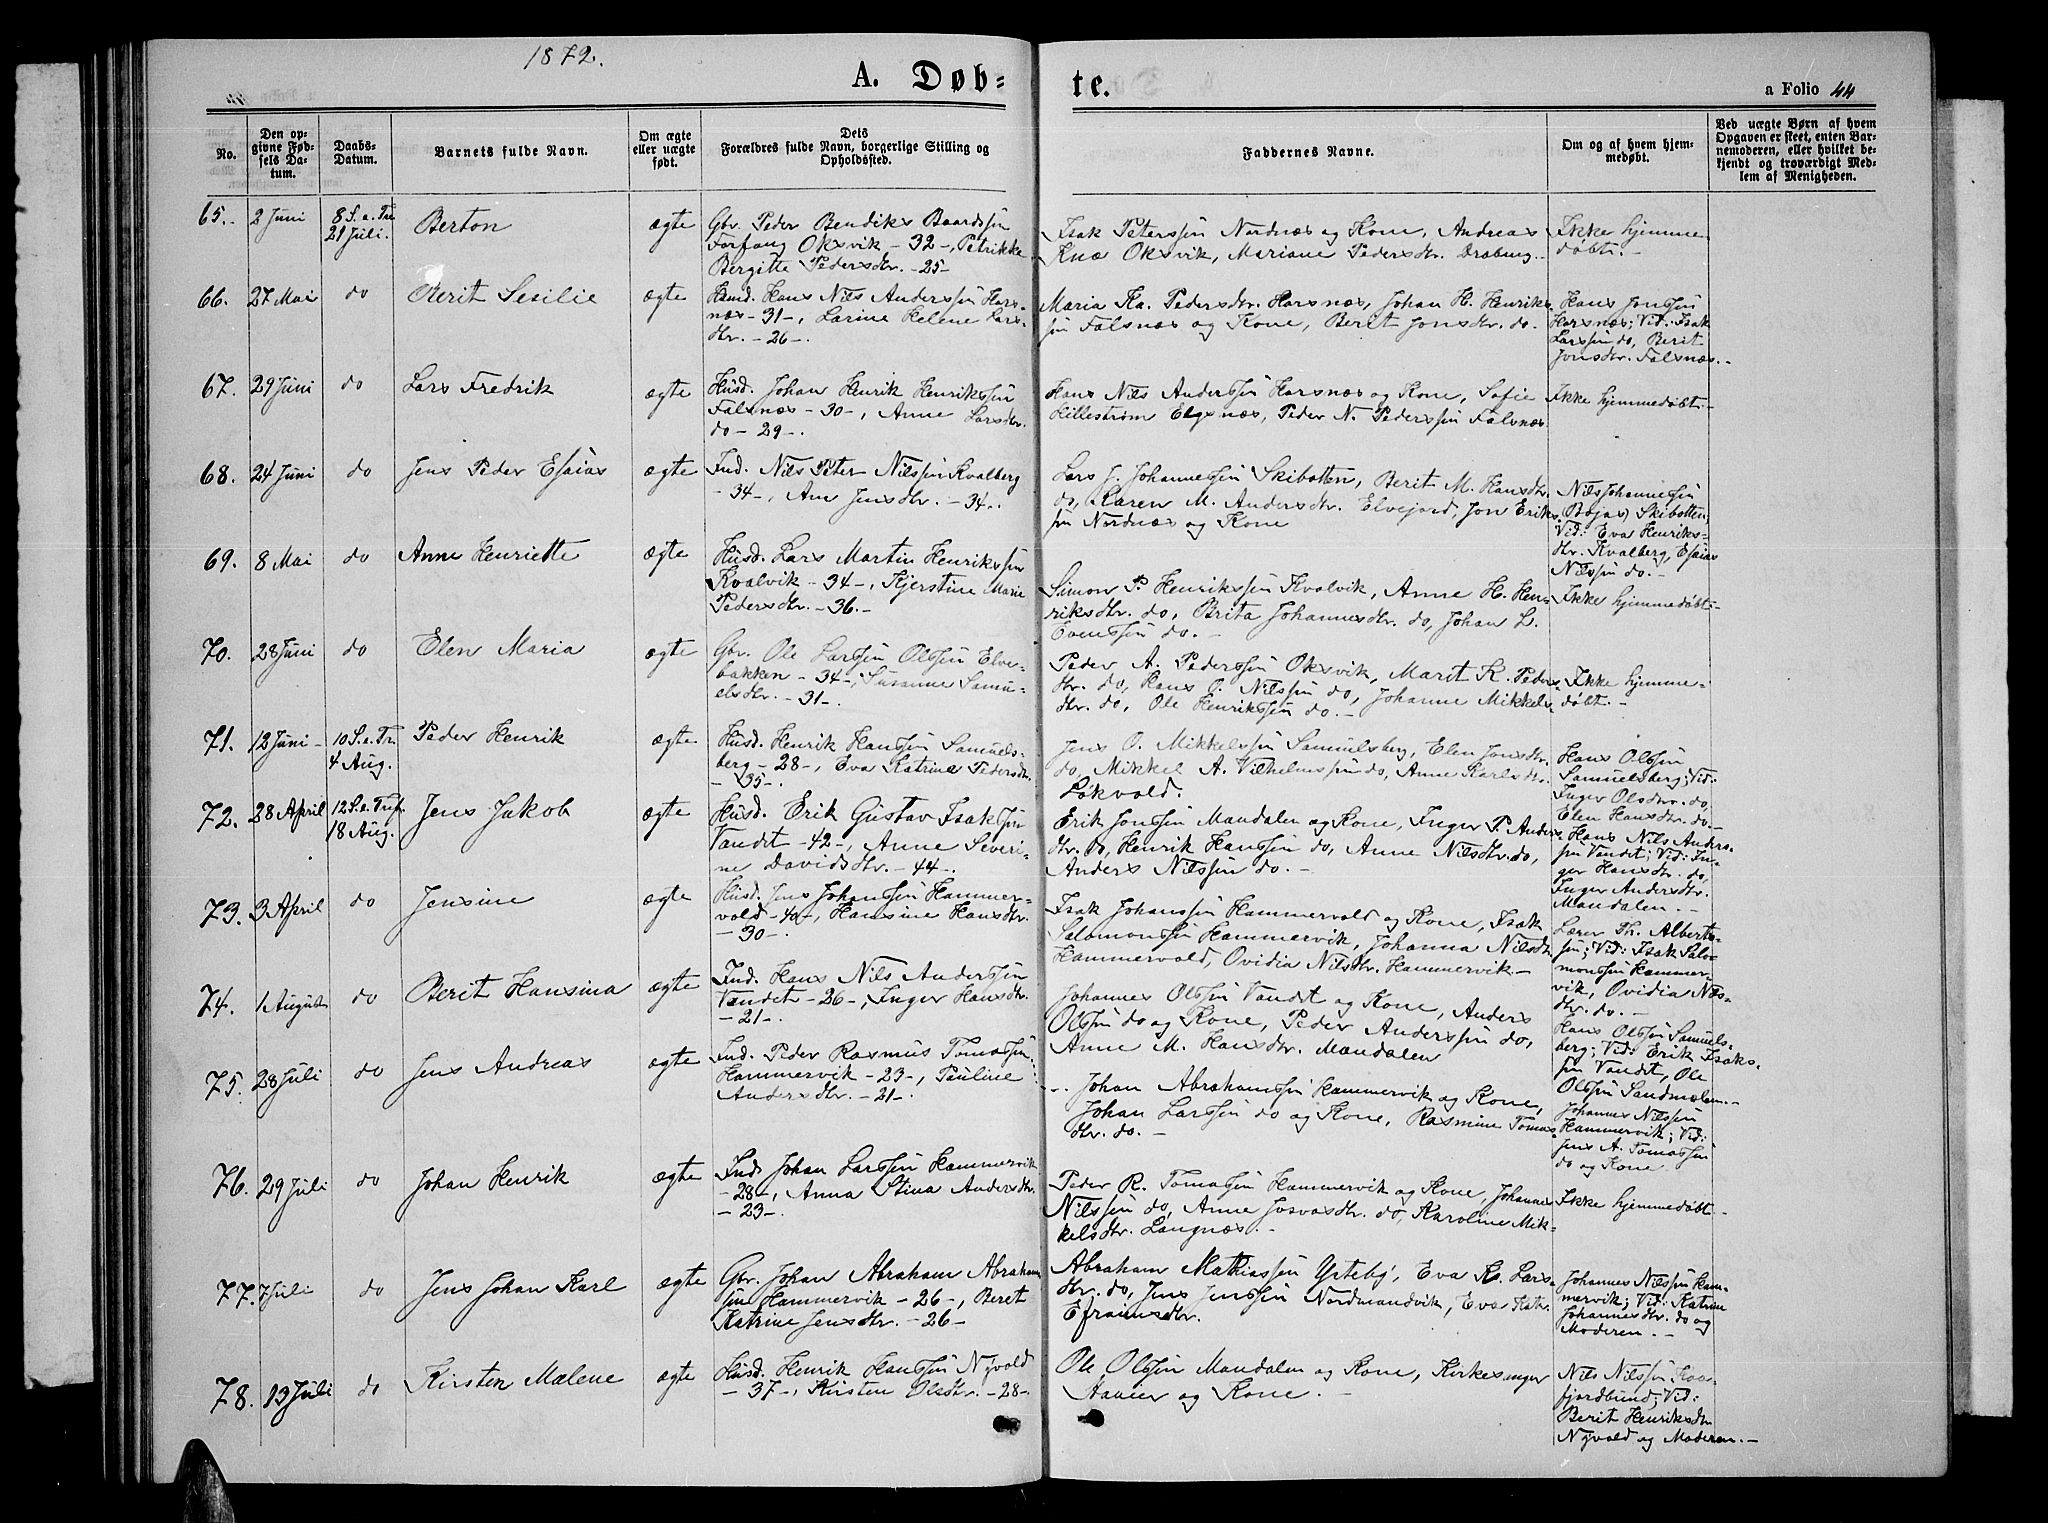 1872.
A. Døb=
te.
a Folio 44
No.
Den op-
givne Fød-
sels Da-
tum.
Daabs-
Datum.
Barnets fulde Navn.
Om ægte
eller uægte
født.
Dets
Forældres fulde Navn, borgerlige Stilling og
Opholdssted.
Faddernes Navne.
Om og af hvem hjem-
medøbt.
Ved uægte Børn af hvem
Opgaven er skeet, enten Bar-
nemoderen, eller hvilket be-
kjendt og troværdigt Med-
lem af Menigheden.
65.- 2 Juni
8 S. e. Tr.
21 Juli.
Berton
ægte
Gbr. Peder Bendiks Baardssøn
Forfang Oksvik - 32 -, Petrikke
Bergitte Pedersdtr. - 25 -
Isak Peterssøn Nordnæs og Kone, Andreas
Knæ Oksvik, Mariane Pedersdtr.
Ikke hjemme
døbt. -
66. 27 Mai do
Berit Sesilie
ægte
Husd. Hans Nils Anderssøn Hors-
næs - 31 -, Larine Helene Lars-
dtr. - 26 -.
Maria Ka. Pedersdtr. Horsnæs, Johan H. Henriks-
søn Falsnæs og Kone, Berit Jonsdtr. do.
Hans Jonssøn
Horsnæs; Vid: Isak
Larssøn do, Berit
Jonsdtr. Falsnæs. -
67. 29 Juni do
Lars Fredrik
ægte
Husd. Johan Henrik Henrikssøn
Falsnæs - 30 -, Anne Larsdtr.
do - 29 -.
Hans Nils Anderssøn Horsnæs og Kone, Sofie
Hellestrøm Elgsnæs, Peder N. Pederssøn Falsnæs
Ikke hjemmedøbt -
68. 24 Juni do
Jens Peder Esaias
ægte
Ind. Nils Peter Nilssøn Kvalberg
- 34 -, Ane Jensdtr. - 34 -.
Lars J. Johannessøn Skibotten, Berit M. Hansdtr.
do, Karen M. Andersdtr. Elvejord, Jon Eriks-
søn Nordnæs og Kone
Nils Johannessøn
(Bojas) Skibotten;
Vid: Eva Henriks-
dtr. Kvalberg, Esaias
Nilssøn do. -
69. 8 Mai do
Anne Henriette
ægte
Husd. Lars Martin Henrikssøn
Kvalvik - 34 -, Kjerstine Marie
Pedersdtr. - 36. -
Simon P. Henrikssøn Kvalvik, Anne H. Hen-
riksdtr. do, Brita Johannesdtr. do, Johan L.
Evenssøn do. -
Ikke hjemmedøbt. -
70. 28 Juni do
Elen Maria
ægte
Gbr. Ole Larssøn Olssøn Elve-
bakken - 34 -, Susanne Samu-
elsdtr. - 31 -.
Peder A. Pederssøn Oksvik, Marit K. Peders-
dtr. do, Hans O. Nilssøn do, Johanne Mikkels-
dtr. do, Ole Henrikssøn do. -
Ikke hjemme-
døbt. -
71. 12 Juni -
10 S. e. Tr.
4 Aug.
Peder Henrik
ægte
Husd. Henrik Hanssøn Samuels-
berg - 28 -, Eva Katrine Pedersdtr.
- 35 -.
Jens O. Mikkelssøn Samuelsberg, Elen Jonsdtr.
do, Mikkel A. Vilhelmssøn do, Anne Karlsdtr.
Løkvold.
Hans Olssøn
Samuelsberg; Vid:
Inger Olsdtr. do,
Elen Hansdtr. do. -
72. 28 April
12 S. e. Tref.
18 Aug.
Jens Jakob
ægte
Husd. Erik Gustav Isakssøn
Vandet - 42 -, Anne Severi-
ne Davidsdtr. - 44 -.
Erik Jonssøn Mandalen og Kone, Inger P. Anders-
dtr. do, Henrik Hanssøn do, Anne Nilsdtr. do,
Anders Nilssøn do. -
Hans Nils Anders-
søn Vandet; Vid: In-
ger Hansdtr. do,
Inger Andersdtr.
Mandalen. -
73. 3 April do
Jensine
ægte
Husd. Jens Johanssøn Hammer-
vold - 40 -, Hansine Hansdtr.
- 30 -.
Isak Johanssøn Hammervold og Kone, Isak
Salomonssøn Hammervik, Johanna Nilsdtr.
Hammervold, Ovidia Nilsdtr. Hammervik. -
Lærer Th. Alberts-
søn; Vid: Isak Salo-
monssøn Hammer-
vik, Ovidia Nils-
dtr. do. -
74. 1 August do
Berit Hansina
ægte
Ind. Hans Nils Anderssøn
Vandet - 26 -, Inger Hansdtr.
- 21 -.
Johannes Olssøn Vandet og Kone, Anders
Olssøn do og Kone, Peder Anderssøn do,
Anne M. Hansdtr. Mandalen
Hans Olssøn Samuels-
berg; Vid: Erik Isaks-
søn Vandet, Ole
Olssøn Sandmælen. -
75. 28 Juli do
Jens Andreas
ægte
Ind. Peder Rasmus Tomassøn
Hammervik - 23 -, Pauline
Andersdtr. - 21 -.
Johan Abrahamssøn Hammervik og Kone,
Johan Larssøn do og Kone, Rasmine Tomas-
dtr. do. -
Johannes Nilssøn
Hammervik; Vid:
Jens A. Tomassøn
do og Kone
76. 29 Juli do
Johan Henrik
ægte
Ind. Johan Larssøn Hammervik
- 28 -, Anna Stina Andersdtr.
- 23 -.
Peder R. Tomassøn Hammervik og Kone, Johannes
Nilssøn do, Anne Josvasdtr. do, Karoline Mik-
kelsdtr. Langnæs. -
Ikke hjemmedøbt. -
77. 7 Juli do
Jens Johan Karl
ægte
Gbr. Johan Abraham Abraham-
søn Hammervik - 26 -, Beret
Katrine Jensdtr. - 26 -
Abraham Mathiassøn Ysteby, Eva K. Lars-
dtr. do, Jens Jenssøn Nordmandvik, Eva Katr.
Efraimsdtr.
Johannes Nilssøn Ham-
mervik; Vid: Katrine
Johannesdtr. do og
Moderen. -
78. 13 Juli do
Kirsten Malene
ægte
Husd. Henrik Hanssøn Nyvold
- 37 -, Kirsten Olsdtr. - 28 -
Ole Olssøn Mandalen og Kone, Kirkesanger
og Kone. -
Nils Nilssøn Kaa-
fjordbund; Vid:
Berit Henriksdtr
Nyvold og Moderen. -